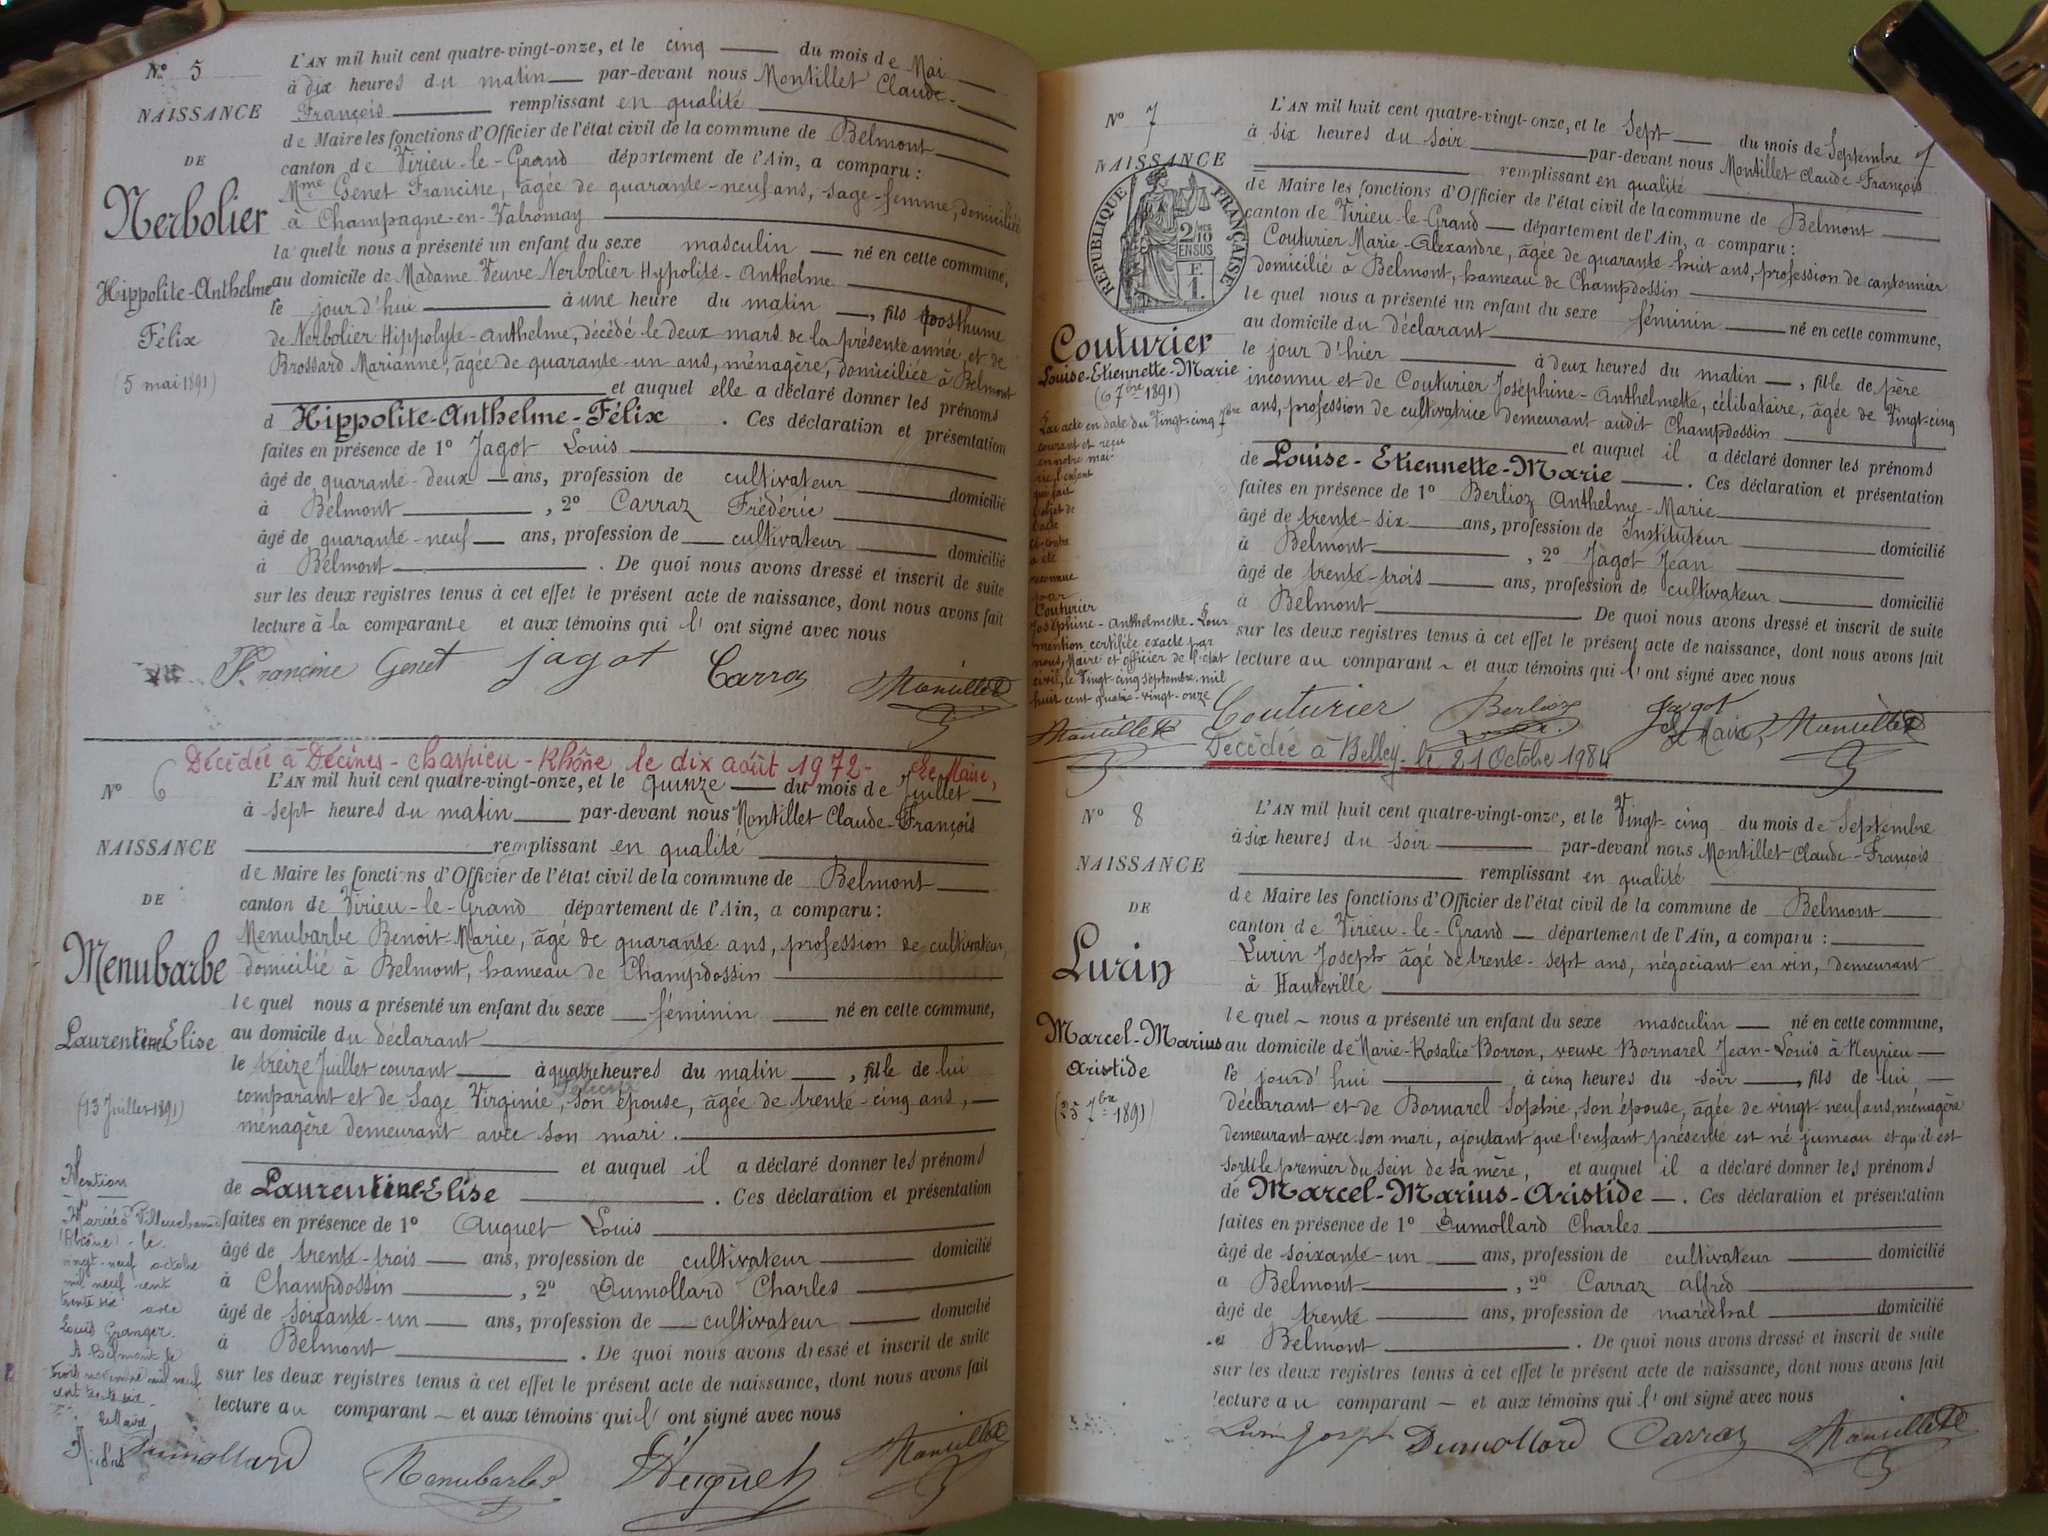 N° 5
NAISSANCE
DE
Nerbolier
Hippolite-Anthelme
Félix
(5 mai 1891)
L'AN mil huit cent quatre-vingt-onze, et le cinq du mois de Mai
à dix heures du matin par-devant nous Montillet Claude-
François remplissant en qualité
de Maire les fonctions d'Officier de l'état civil de la commune de Belmont
canton de Virieu-le-Grand département de l'Ain, a comparu :
Mme Genet Francine, âgée de quarante-neuf ans, sage-femme, domiciliée
à Champagne-en-Valromay
la quelle nous a présenté un enfant du sexe masculin né en cette commune,
au domicile de Madame Veuve Nerbolier Hypolite-Anthelme
le jour d'hui à une heure du matin, fils posthume
de Nerbolier Hippolyte-Anthelme, décédé le deux mars de la présente année, et de
Brossard Marianne, âgée de quarante-un ans, ménagère, domiciliée à Belmont
et auquel elle a déclaré donner les prénoms
d Hippolite-Anthelme-Félix. Ces déclaration et présentation
faites en présence de 1° Jagot Louis
âgé de quarante-deux ans, profession de cultivateur domicilié
à Belmont, 2° Carraz Frédéric
âgé de quarante-neuf ans, profession de cultivateur domicilié
à Belmont. De quoi nous avons dressé et inscrit de suite
sur les deux registres tenus à cet effet le présent acte de naissance, dont nous avons fait
lecture à la comparante et aux témoins qui l' ont signé avec nous
Francine Genet Jagot Carraz Montillet
Décédée à Décines-Charpieu-Rhône le dix août 1972- Le Maire,
N° 6
NAISSANCE
DE
Menubarbe
Laurentine Elise
(13 Juillet 1891)
Mention
Mariée à Villeurbanne
(Rhône) le
vingt-neuf octobre
mil neuf cent
trente six avec
Louis Granger.
A Belmont le
trois novembre mil neuf
cent trente six
Le Maire,
L'AN mil huit cent quatre-vingt-onze, et le quinze du mois de Juillet
à sept heures du matin par-devant nous Montillet Claude-François
remplissant en qualité
de Maire les fonctions d'Officier de l'état civil de la commune de Belmont
canton de Virieu-le-Grand département de l'Ain, a comparu :
Menubarbe Benoit-Marie, âgé de quarante ans, profession de cultivateur,
domicilié à Belmont, hameau de Champdossin
le quel nous a présenté un enfant du sexe féminin né en cette commune,
au domicile du déclarant
le treize Juillet courant à quatre heures du matin, fille de lui
comparant et de Sage Virginie, son épouse, âgée de trente-cinq ans,
ménagère demeurant avec son mari.
et auquel il a déclaré donner les prénoms
de Laurentine Elise. Ces déclaration et présentation
faites en présence de 1° Auguet Louis
âgé de trente-trois ans, profession de cultivateur domicilié
à Champdossin, 2° Dumollard Charles
âgé de soixante-un ans, profession de cultivateur domicilié
à Belmont. De quoi nous avons dressé et inscrit de suite
sur les deux registres tenus à cet effet le présent acte de naissance, dont nous avons fait
lecture au comparant et aux témoins qui l' ont signé avec nous
Dumollard Menubarbe Auguet Montillet
7
N° 7
NAISSANCE
RÉPUBLIQUE FRANÇAISE
2/10
EN SUS
F.
1.
Couturier
Louise-Etiennette-Marie
(6 7bre 1891)
Par acte en date du Vingt-cinq 7bre
courant et reçu
en notre mai-
rie, l'enfant
qui fait
l'objet de
l'acte
ci-contre
a été
reconnue
par
Couturier
Joséphine-Anthelmette. Pour
mention certifiée exacte par
nous, Maire et officier de l'état
civil, le Vingt-cinq septembre mil
huit cent quatre-vingt-onze
Montillet
L'AN mil huit cent quatre-vingt-onze, et le sept du mois de Septembre
à six heures du soir par-devant nous Montillet Claude-François
remplissant en qualité
de Maire les fonctions d'Officier de l'état civil de la commune de Belmont
canton de Virieu-le-Grand département de l'Ain, a comparu :
Couturier Marie-Alexandre, âgée de quarante huit ans, profession de cantonnier
domicilié à Belmont, hameau de Champdossin
le quel nous a présenté un enfant du sexe féminin né en cette commune,
au domicile du déclarant
le jour d'hier à deux heures du matin, fille de père
inconnu et de Couturier Joséphine-Anthelmette, célibataire, âgée de Vingt-cinq
ans, profession de cultivatrice demeurant audit Champdossin
et auquel il a déclaré donner les prénoms
de Louise-Etiennette-Marie. Ces déclaration et présentation
faites en présence de 1° Berlioz Anthelme-Marie
âgé de trente-six ans, profession de Instituteur domicilié
à Belmont, 2° Jagot Jean
âgé de trente-trois ans, profession de cultivateur domicilié
à Belmont De quoi nous avons dressé et inscrit de suite
sur les deux registres tenus à cet effet le présent acte de naissance, dont nous avons fait
lecture au comparant et aux témoins qui l' ont signé avec nous
Couturier Berlioz Jagot Le Maire, Montillet
Décédée à Belley le 21 Octobre 1984
N° 8
NAISSANCE
DE
Lurin
Marcel-Marius
Aristide
(25 7bre 1891)
L'AN mil huit cent quatre-vingt-onze, et le Vingt-cinq du mois de Septembre
à six heures du soir par-devant nous Montillet Claude-François
remplissant en qualité
de Maire les fonctions d'Officier de l'état civil de la commune de Belmont
canton de Virieu-le-Grand département de l'Ain, a comparu :
Lurin Joseph âgé de trente-sept ans, négociant en vin, demeurant
à Hauteville
le quel nous a présenté un enfant du sexe masculin né en cette commune,
au domicile de Marie-Rosalie Borron, veuve Bornarel Jean-Louis à Neyrieu
le jourd'hui à cinq heures du soir, fils de lui
déclarant et de Bornarel Sophie, son épouse, âgée de vingt-neuf ans, ménagère
demeurant avec son mari, ajoutant que l'enfant présenté est né jumeau et qu'il est
sorti le premier du sein de sa mère, et auquel il a déclaré donner les prénoms
de Marcel-Marius-Aristide. Ces déclaration et présentation
faites en présence de 1° Dumollard Charles
âgé de soixante-un ans, profession de cultivateur domicilié
à Belmont, 2° Carraz Alfred
âgé de trente ans, profession de maréchal domicilié
à Belmont. De quoi nous avons dressé et inscrit de suite
sur les deux registres tenus à cet effet le présent acte de naissance, dont nous avons fait
lecture au comparant et aux témoins qui l' ont signé avec nous
Lurin Joseph Dumollard Carraz Montillet